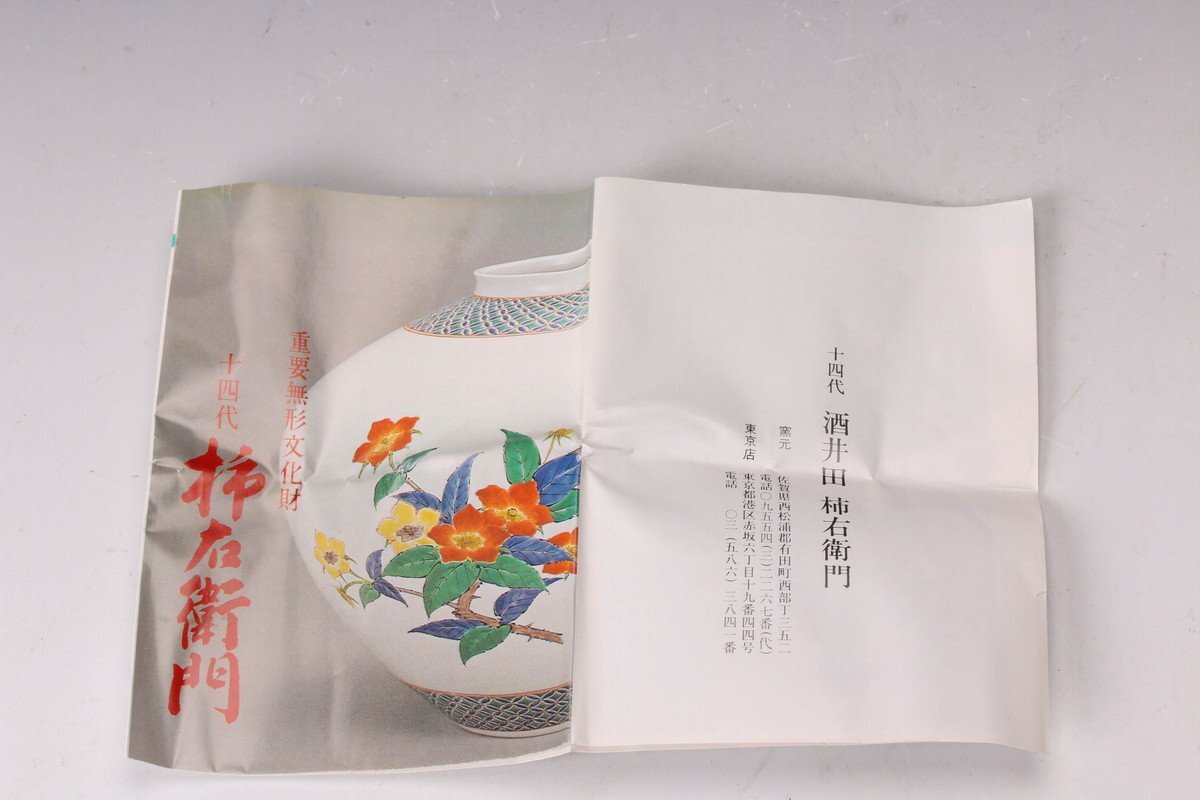 十四代 酒井田 柿右衛門
窯元 佐賀県西松浦郡有田町西部丁三五二
電話〇九五五四(二)二二六七番(代)
東京店 東京都港区赤坂六丁目十九番四四号
電話 〇三(五八六)三八四一番
重要無形文化財
十四代 柿右衛門